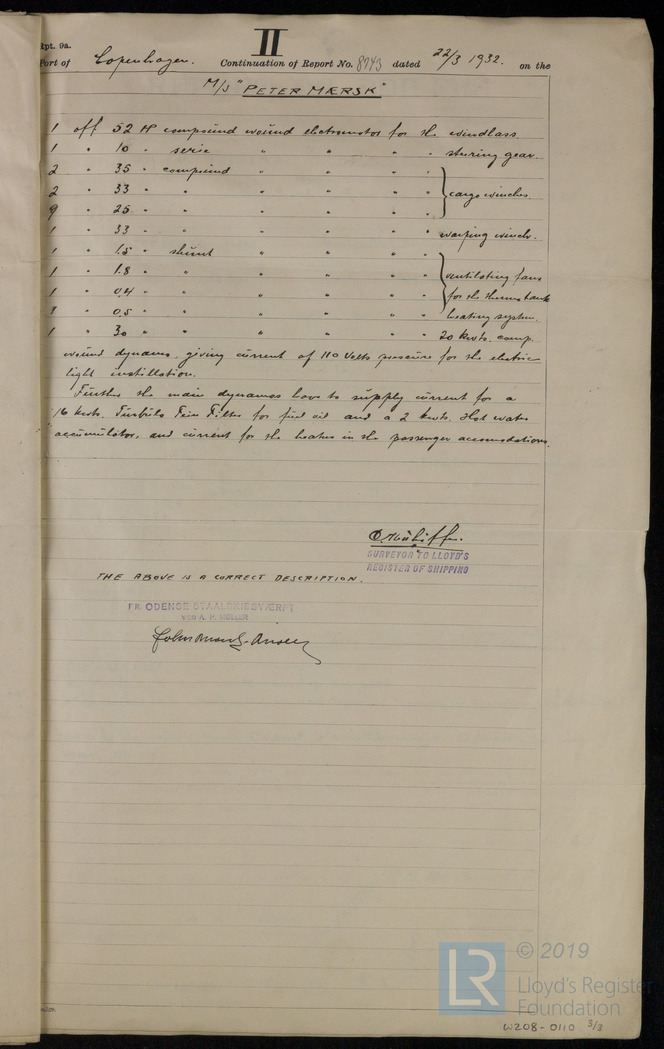 II
Rpt. 9a.
Port of Copenhagen. Continuation of Report No. 8743 dated 22/3 1932. on the
M/S "PETER MÆRSK"
1 off 52 HP compound wound electromotor for the windlass
1 " 10 " serie " " " " steering gear.
2 " 35 " compound " " " "
2 " 33 " " " " " " } cargo winches
9 " 25 " " " " " "
1 " 33 " " " " " " warping winch.
1 " 1.5 " shunt " " " "
1 " 1.8 " " " " " " } ventilating fans
1 " 0.4 " " " " " " for the thermotank
" 0.5 " " " " " heating system.
1 " 30 " " " " " " 20 kwts. comp.
wound dynamo, giving current of 110 Volts pressure for the electric
light instillation.
Further the main dynamos have to supply current for a
16 kwts. Turbulo Fein Filter for fuel oil and a 2 kwts. Hot water
accumulator, and current for the heater in the passenger accomodations.
SURVEYOR TO LLOYD'S
REGISTER OF SHIPPING
THE ABOVE IS A CORRECT DESCRIPTION.
FR. ODENSE STAALSKIBSVÆRFT
VED A. P. MØLLER
© 2019
LR Lloyd's Register
Foundation
W208-0110 3/3